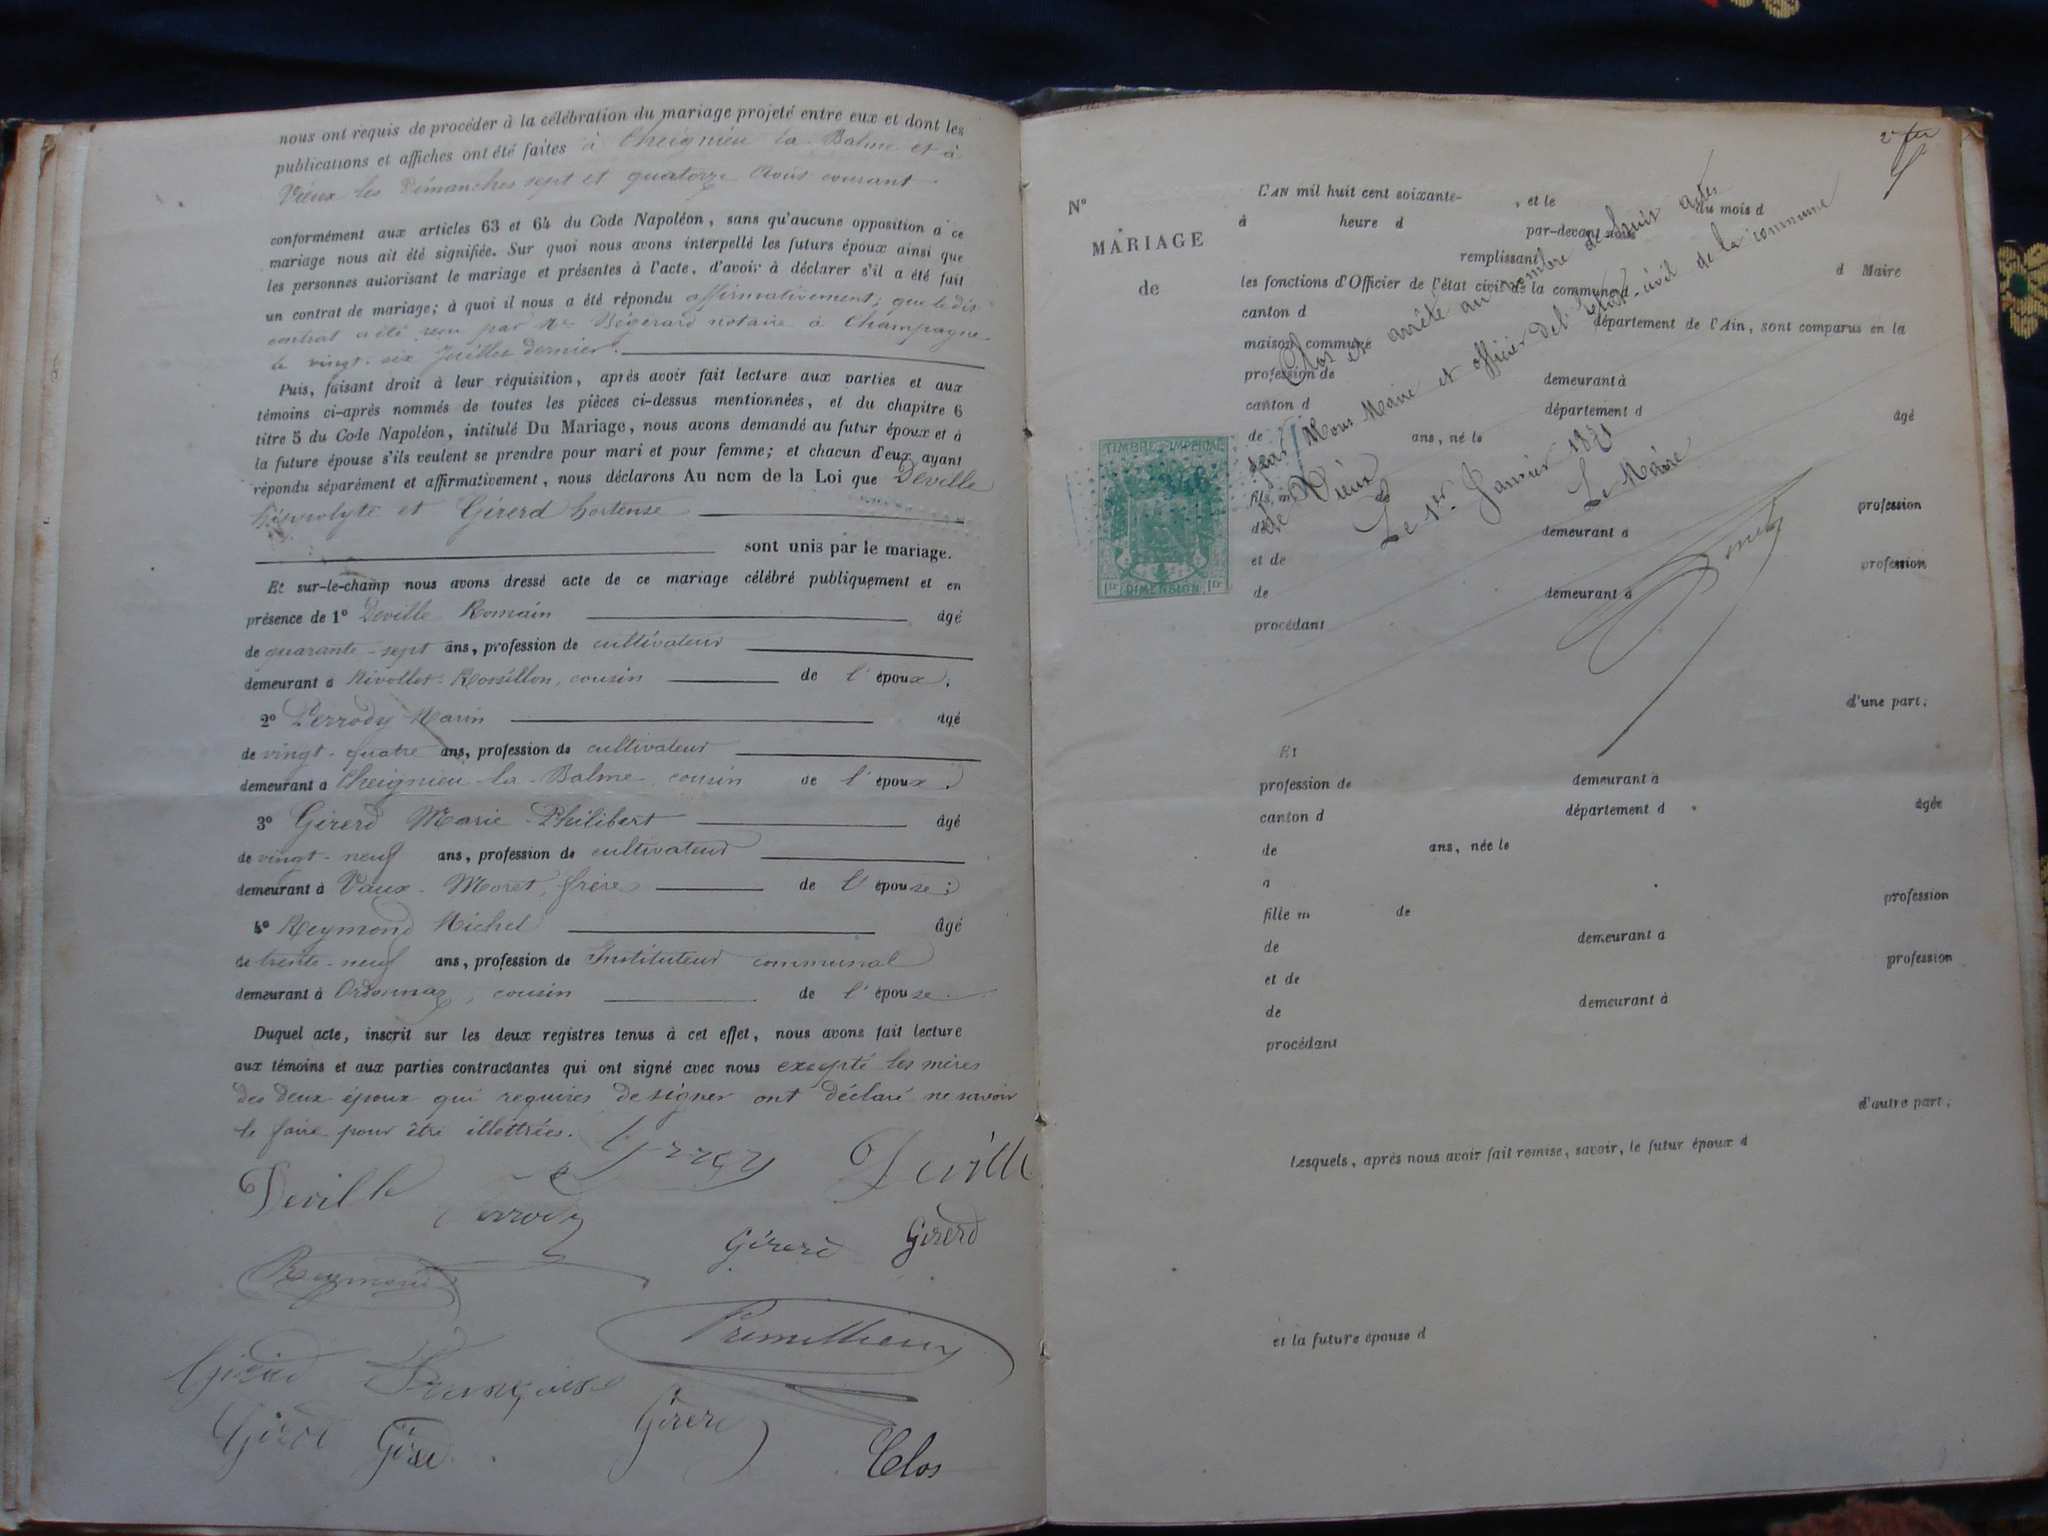 nous ont requis de procéder à la célébration du mariage projeté entre eux et dont les
publications et affiches ont été faites à Cheignieu la Balme et à
Vieux les Dimanches sept et quatorze Août courant.
conformément aux articles 63 et 64 du Code Napoléon, sans qu'aucune opposition à ce
mariage nous ait été signifiée. Sur quoi nous avons interpellé les futurs époux ainsi que
les personnes autorisant le mariage et présentes à l'acte, d'avoir à déclarer s'il a été fait
un contrat de mariage; à quoi il nous a été répondu affirmativement; que le dit
contrat a été reçu par Me Bégerard notaire à Champagne
le vingt-six Juillet dernier.
Puis, faisant droit à leur réquisition, après avoir fait lecture aux parties et aux
témoins ci-après nommés de toutes les pièces ci-dessus mentionnées, et du chapitre 6
titre 5 du Code Napoléon, intitulé Du Mariage, nous avons demandé au futur époux et à
la future épouse s'ils veulent se prendre pour mari et pour femme; et chacun d'eux ayant
répondu séparément et affirmativement, nous déclarons Au nom de la Loi que Deville
hippolyte et Gérerd hortense
sont unis par le mariage.
Et sur-le-champ nous avons dressé acte de ce mariage célébré publiquement et en
présence de 1° Deville Romain âgé
de quarante-sept ans, profession de cultivateur
demeurant à Rossillon, cousin de l'époux.
2° Perrody Marin âgé
de vingt-quatre ans, profession de cultivateur
demeurant a Cheignieu-la-Balme, cousin de l'époux.
3° Girerd Marie Philibert âgé
de vingt-neuf ans, profession de cultivateur
demeurant à Vaux-Moret, frère de l'épouse;
4° Reymond Michel âgé
de trente-neuf ans, profession de Instituteur communal
demeurant à Ordonnaz, cousin de l'épouse.
Duquel acte, inscrit sur les deux registres tenus à cet effet, nous avons fait lecture
aux témoins et aux parties contractantes qui ont signé avec nous excepté les mères
des deux époux qui requises de signer ont déclaré ne savoir
le faire pour être illettrées.
Deville Perrody Deville
Girerd Girerd
Reymond
Premillieux
Girerd Françoise
Girerd Girerd Girerd
Clos
N°
MARIAGE
de
L'AN mil huit cent soixante- , et le du mois d
à heure d par-devant nous
remplissant
les fonctions d'Officier de l'état civil de la commune d
d Maire
canton d département de l'Ain, sont comparus en la
maison commune
profession de demeurant à
canton d département d
âgé
de ans, né le
fils m de
profession
de demeurant a
et de
profession
de demeurant à
procédant
d'une part;
Clos et arrêté au nombre de huit actes
par Nous Maire et officier de l'état-civil de la commune
de Vieux
Le 1er Janvier 1871
Le Maire
TIMBRE IMPERIAL
1fr DIMENSION 1fr
Et
profession de demeurant à
canton d département d
âgée
de ans, née le
a
fille m de
profession
de demeurant a
et de
profession
de demeurant à
procédant
d'autre part;
Lesquels, après nous avoir fait remise, savoir, le futur époux d
et la future épouse d